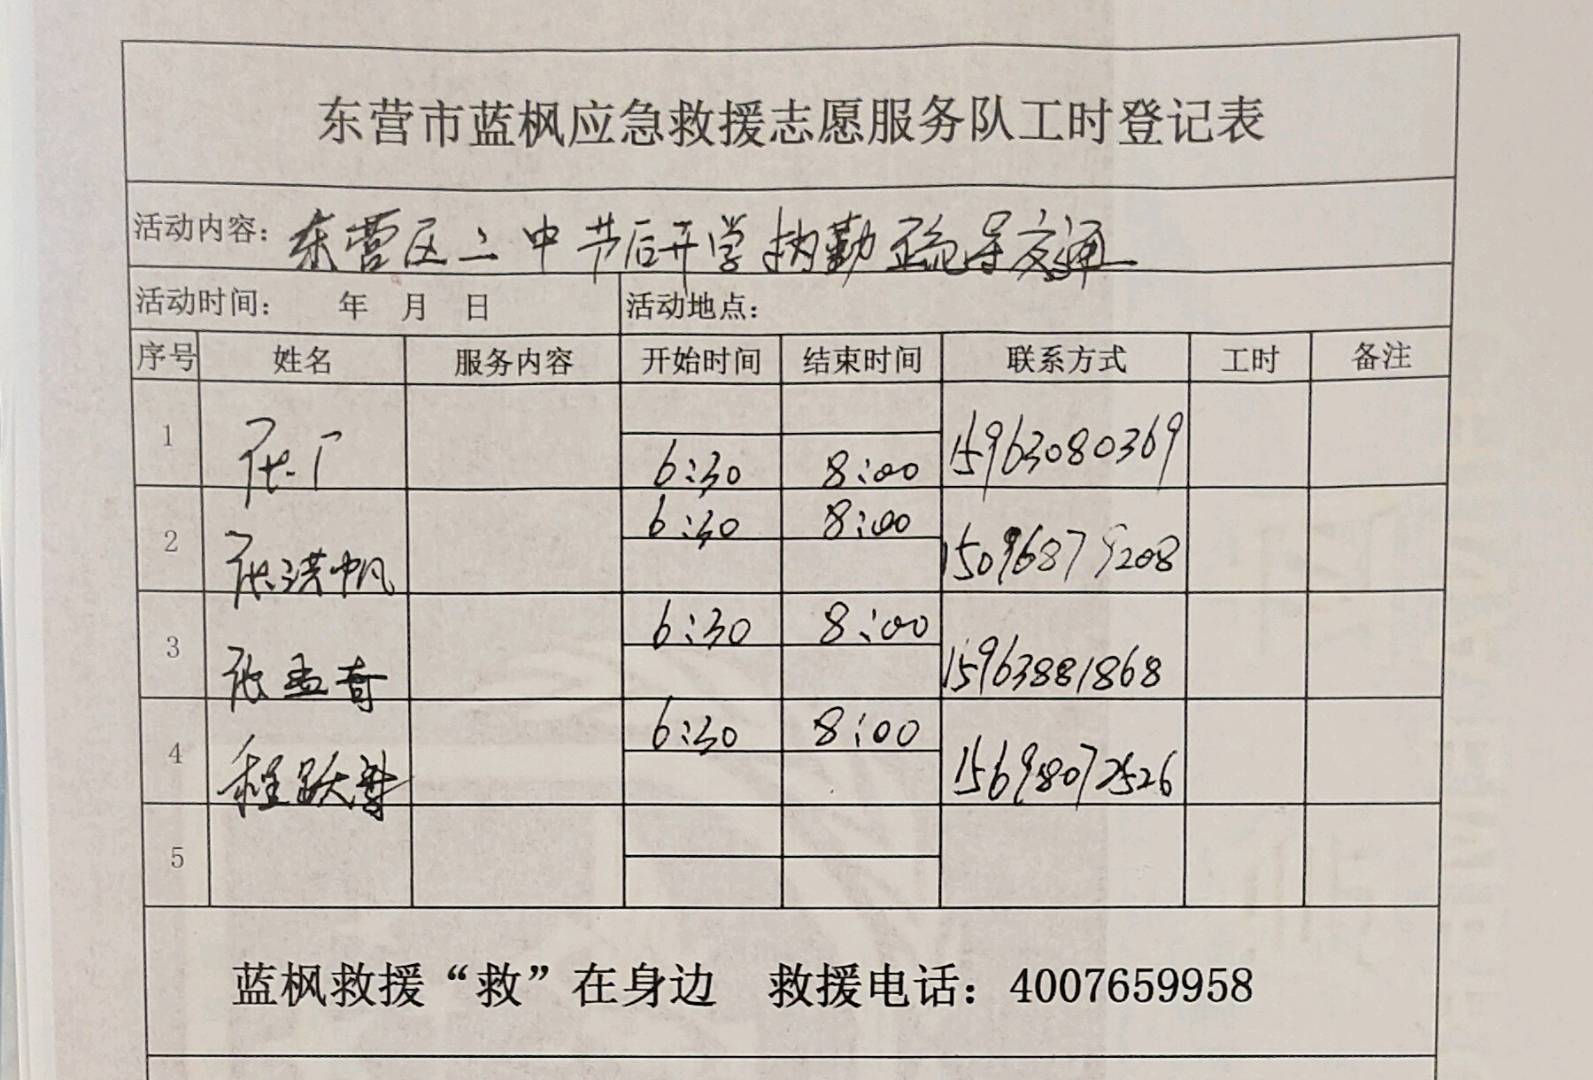 东营市蓝枫应急救援志愿服务队工时登记表
活动内容：东营区二中节后开学执勤疏导交通
活动时间： 年 月 日 活动地点：
序号 姓名 服务内容 开始时间 结束时间 联系方式 工时 备注
1 张广 6:30 8:00 15963080369
2 张洪帆 6:30 8:00 15096879208
3 张孟奇 6:30 8:00 15963881868
4 程跃 6:30 8:00 15698072526
5
蓝枫救援“救”在身边 救援电话：4007659958